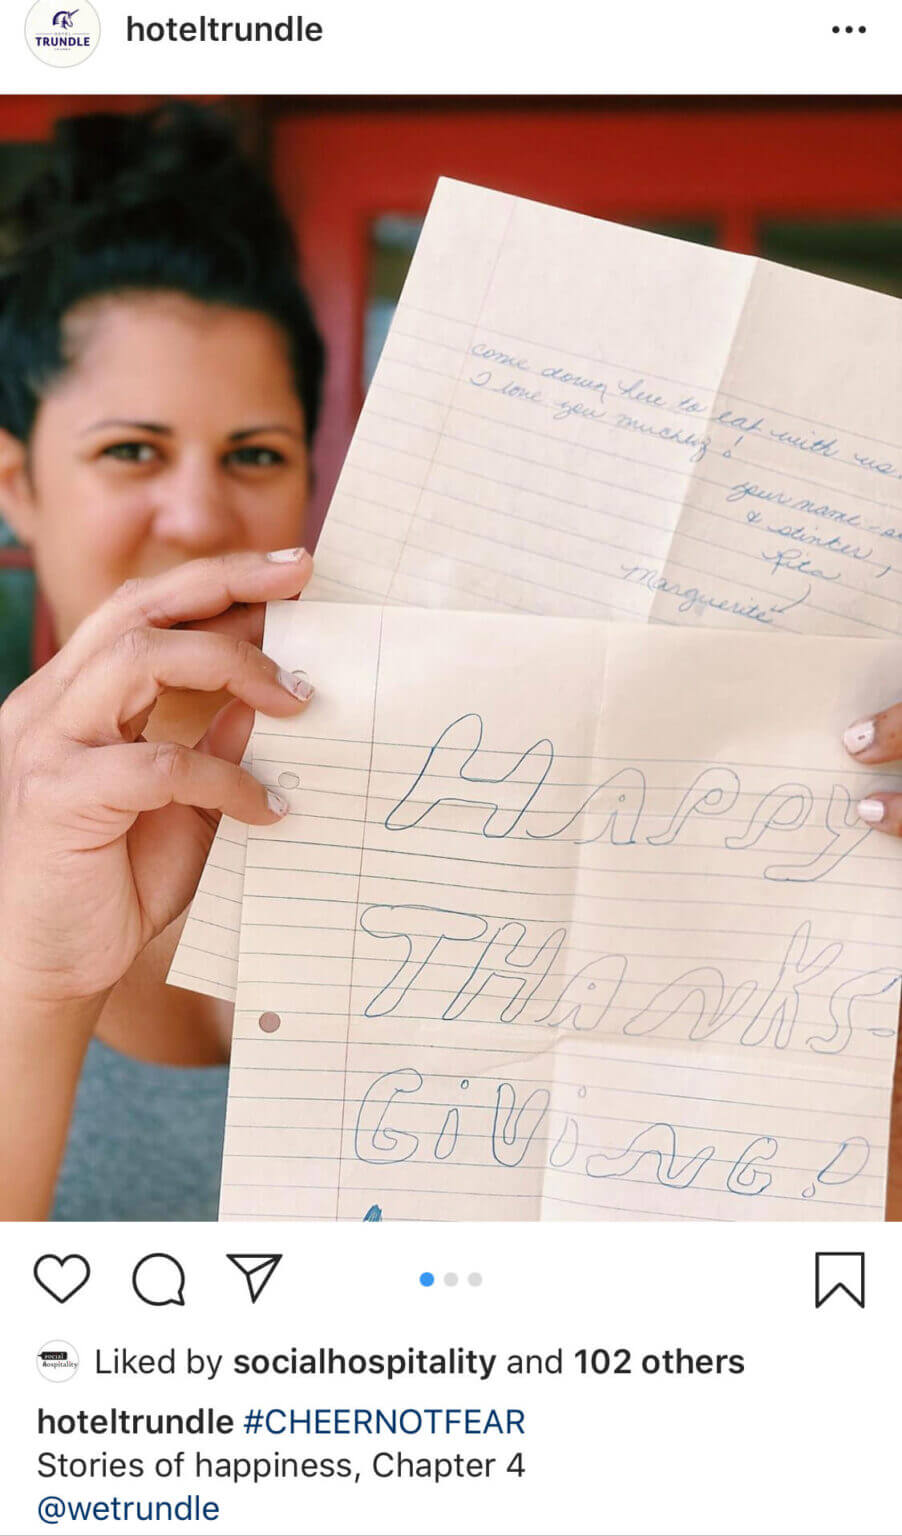 HOTEL
TRUNDLE
hoteltrundle
come down here to eat with us.
I love you muchly!
your name-
& stinker,
Rita
Marguerite
HAPPY
THANKS-
GIVING!
social
hospitality
Liked by socialhospitality and 102 others
hoteltrundle #CHEERNOTFEAR
Stories of happiness, Chapter 4
@wetrundle